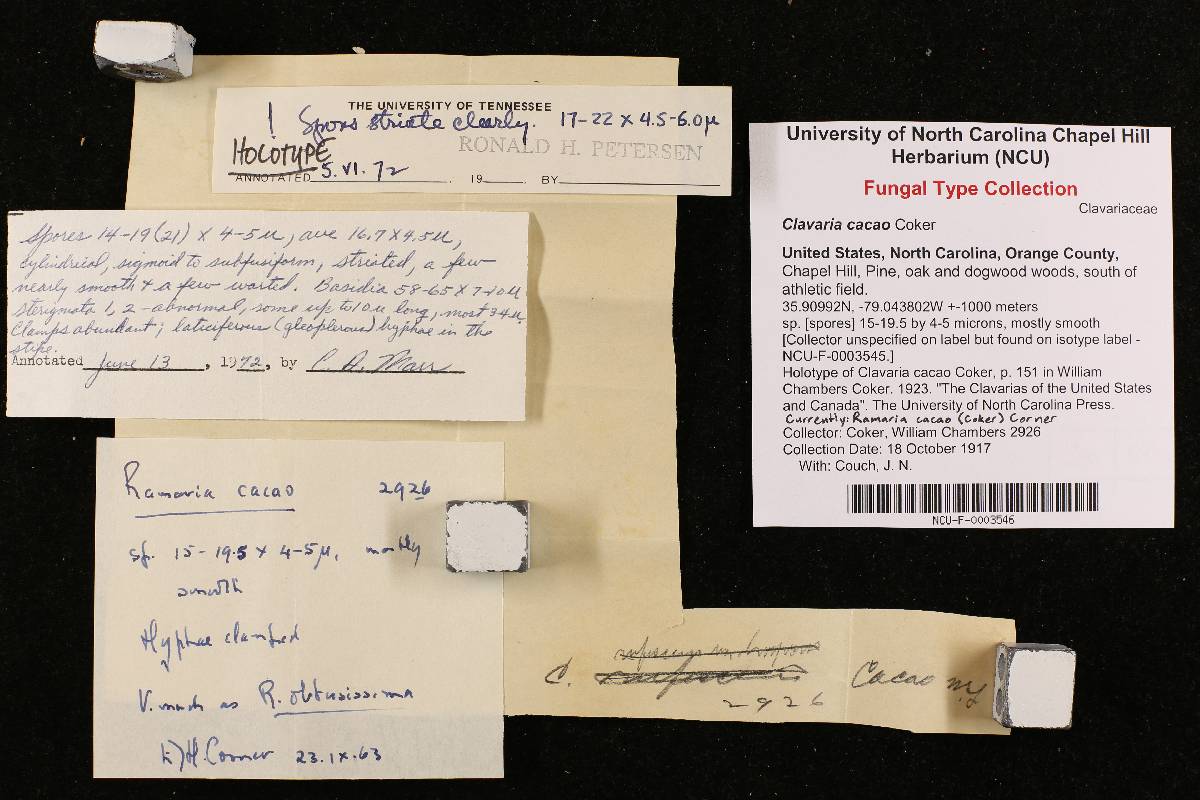 THE UNIVERSITY OF TENNESSEE
! Spores striate clearly. 17-22 x 4.5-6.0µ
HOLOTYPE
RONALD H. PETERSEN
ANNOTATED 5.VI.72 19 BY
Spores 14-19(21) x 4-5µ, ave 16.7 x 4.5µ,
cylindrical, sigmoid to subfusiform, striated, a few
nearly smooth & a few warted. Basidia 58-65 x 7-10µ
sterigmata 1, 2-abnormal, some up to 10µ long, most 3-4µ.
Clamps abundant; laticiferous (gleoplerous) hyphae in the
stipe.
Annotated June 13, 1972, by C. D. Marr
Ramaria cacao 2926
sp. 15-19.5 x 4-5µ, mostly
smooth
Hyphae clamped
V. much as R. obtusissima
EJH Corner 23.IX.63
C. Cacao n.sp
2926
University of North Carolina Chapel Hill
Herbarium (NCU)
Fungal Type Collection
Clavariaceae
Clavaria cacao Coker
United States, North Carolina, Orange County,
Chapel Hill, Pine, oak and dogwood woods, south of
athletic field.
35.90992N, -79.043802W +-1000 meters
sp. [spores] 15-19.5 by 4-5 microns, mostly smooth
[Collector unspecified on label but found on isotype label -
NCU-F-0003545.]
Holotype of Clavaria cacao Coker, p. 151 in William
Chambers Coker. 1923. "The Clavarias of the United States
and Canada". The University of North Carolina Press.
Currently: Ramaria cacao (Coker) Corner
Collector: Coker, William Chambers 2926
Collection Date: 18 October 1917
With: Couch, J. N.
NCU-F-0003546